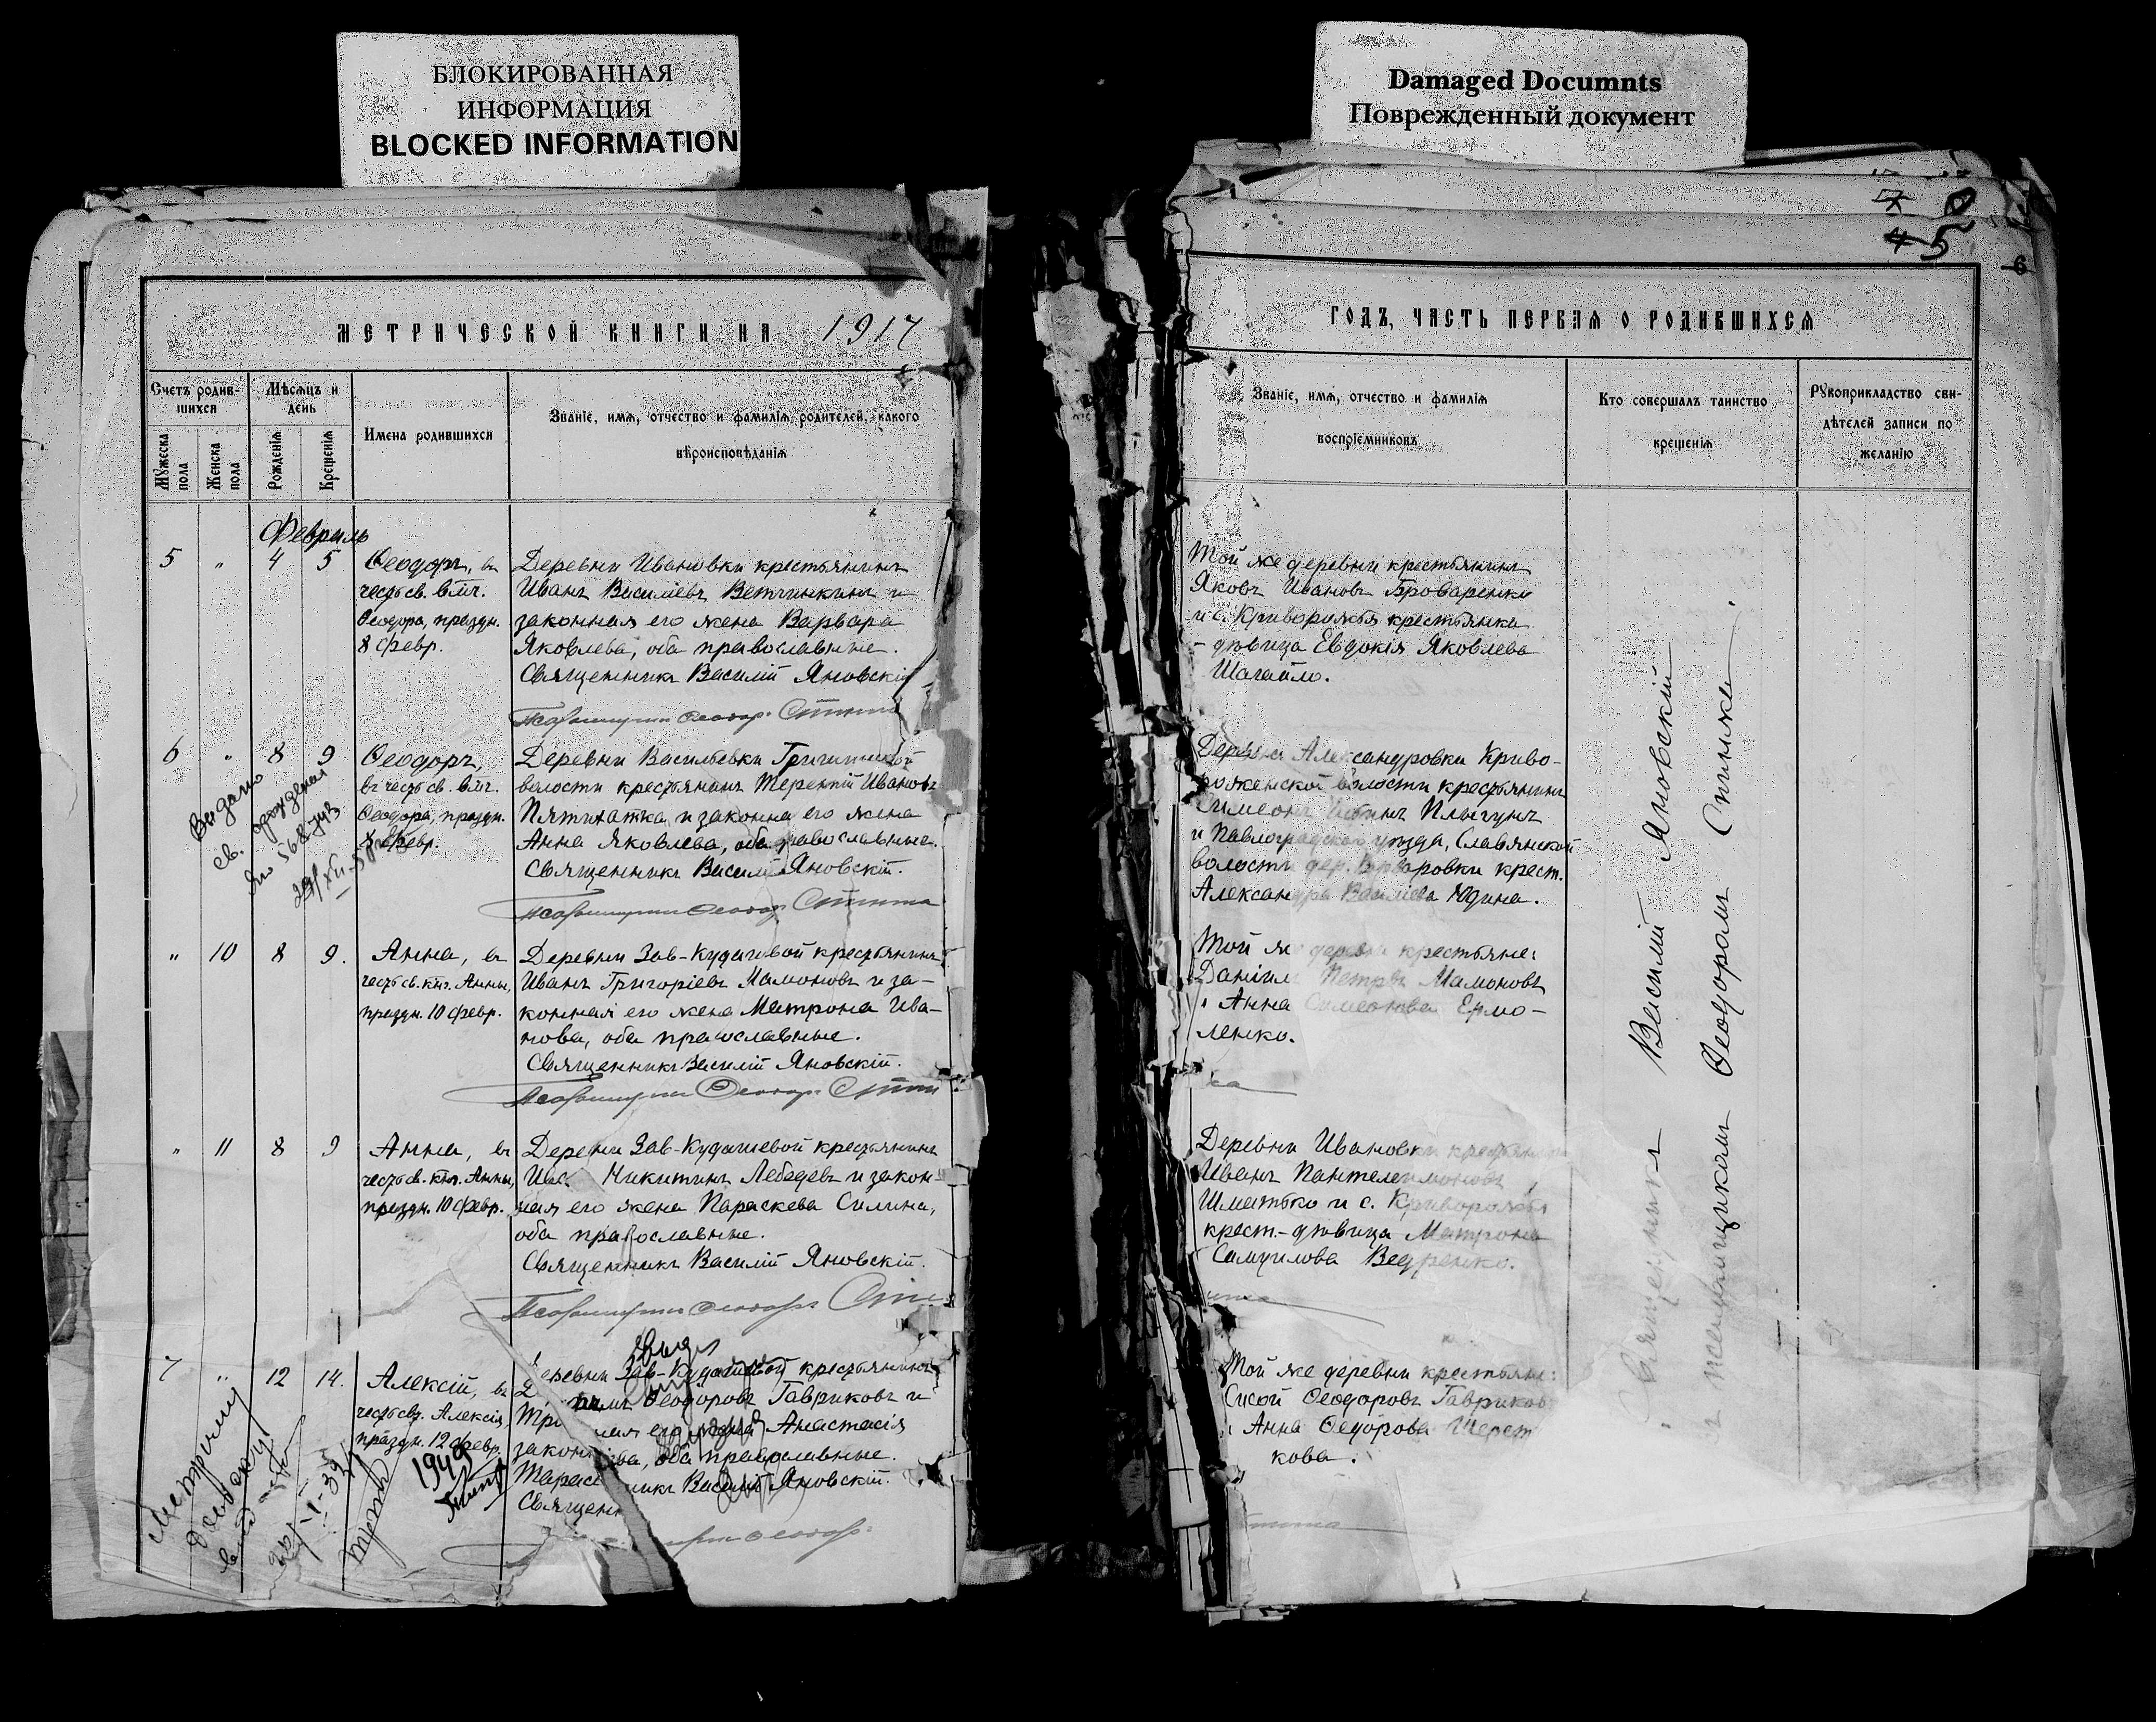 БЛОКИРОВАННАЯ
ИНФОРМАЦИЯ
BLOCKED INFORMATION
Damaged Documnts
Поврежденный документ
5
6
МЕТРИЧЕСКОЙ КНИГИ НА 1917
Счетъ родив-
шихся
Мѣсяцъ и
день
Мужеска пола
Женска пола
Рожденія
Крещенія
Имена родившихся
Званіе, имя, отчество и фамилія родителей, какого
вѣроисповѣданія
Февраль
5 " 4 5
Ѳеодоръ, въ
честь св. влмч.
Ѳеодора, праздн.
8 февр.
Деревни Ивановки крестьянинъ
Иванъ Василіевъ Ветчинкинъ и
законная его жена Варвара
Яковлева, оба православные.
Священникъ Василій Яновскій
Псаломщикъ Ѳеодоръ
6 " 8 9
Ѳеодоръ,
въ честь св. влмч.
Ѳеодора, праздн.
8 февр.
Деревни Васильевки
волости крестьянинъ Терентій Ивановъ
Пятихатка и законная его жена
Анна Яковлева, оба православные.
Священникъ Василій Яновскій.
Псаломщикъ Ѳеодоръ
Выдано
св. о рождении
" 10 8 9.
Анна, въ
честь св. Анны,
праздн. 10 февр.
Деревни Зав-Кудашевой крестьянинъ
Иванъ Григоріевъ Мамоновъ и за-
конная его жена Матрона Ива-
нова, оба православные.
Священникъ Василій Яновскій.
Псаломщикъ Ѳеодоръ
" 11 8 9
Анна, въ
честь св. Анны,
праздн. 10 февр.
Деревни Зав-Кудашевой крестьянинъ
Никитинъ Лебедевъ и закон-
ная его жена Параскева Силина,
оба православные.
Священникъ Василій Яновскій.
Псаломщикъ Ѳеодоръ
7 " 12 14.
Алексій, въ
честь свт. Алексія,
праздн. 12 февр.
Деревни Зав-Кудашевой крестьянинъ
Ѳеодоровъ Гавриковъ и
законная его жена Анастасія
оба православные.
Священникъ Василій Яновскій.
Ѳеодоръ
1949
ГОДЪ, ЧАСТЬ ПЕРВАЯ О РОДИВШИХСЯ
Званіе, имя, отчество и фамилія
воспріемниковъ
Кто совершалъ таинство
крещенія
Рукоприкладство сви-
дѣтелей записи по
желанію
Той же деревни крестьянинъ
Яковъ Ивановъ Броваренко
и с. Криворожья крестьянка
- дѣвица Евдокія Яковлева
Шагайло.
Деревни Александровки Криво-
рожской волости крестьянинъ
Симеонъ Плыгунъ
и Павлоградскаго уѣзда, Славянской
волости дер. Варваровки крест.
Александра Василіева Юдина.
Той же деревни крестьяне:
Даніилъ Петровъ Мамоновъ
и Анна Симеонова Ермо-
ленко.
Деревни Ивановки крестьянинъ
Иванъ Пантелеимоновъ
Шматько и с. Криворожья
крест.-дѣвица Матрона
Самуилова Ведренко.
Той же деревни крестьяне:
Ѳеодоровъ Гавриковъ
и Анна Ѳеодорова
кова.
Священникъ Василій Яновскій
съ псаломщикомъ Ѳеодоромъ Спинка